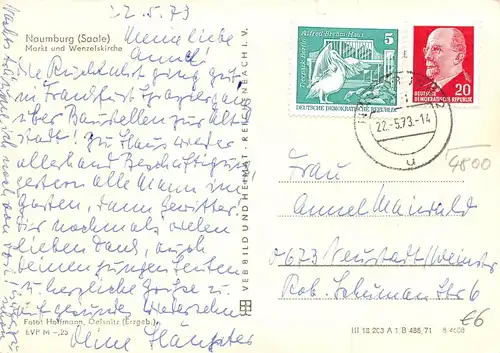 22.5.73
Naumburg (Saale)
Markt und Wenzelskirche
Meine liebe
Die Rückfahrt ging gut
in Frankfurt
über Baustellen zur Alt-
stadt. Zu Haus wieder
allerhand Beschäftigung
gestern alle Mann im
Garten, dann Gewitter.
Dir nochmals vielen
lieben Dank, auch
Deinen jungen Leuten
u. herzliche Grüße u.
auf gesundes Wiedersehen
Deine
Foto: Hoffmann, Oelsnitz (Erzgeb.)
EVP M -,25
VEB BILD UND HEIMAT · REICHENBACH I. V.
Alfred-Brehm-Haus
5
Tierpark Berlin
DEUTSCHE DEMOKRATISCHE REPUBLIK
20
DEUTSCHE
DEMOKRATISCHE REPUBLIK
22.-5.73.-14
u
4800
Frau
Annel Maiwald
0673 Neustadt/Weinstr
Rob. Schuman Str 6
€6
III 18 203 A 1 B 486/71 6 4800